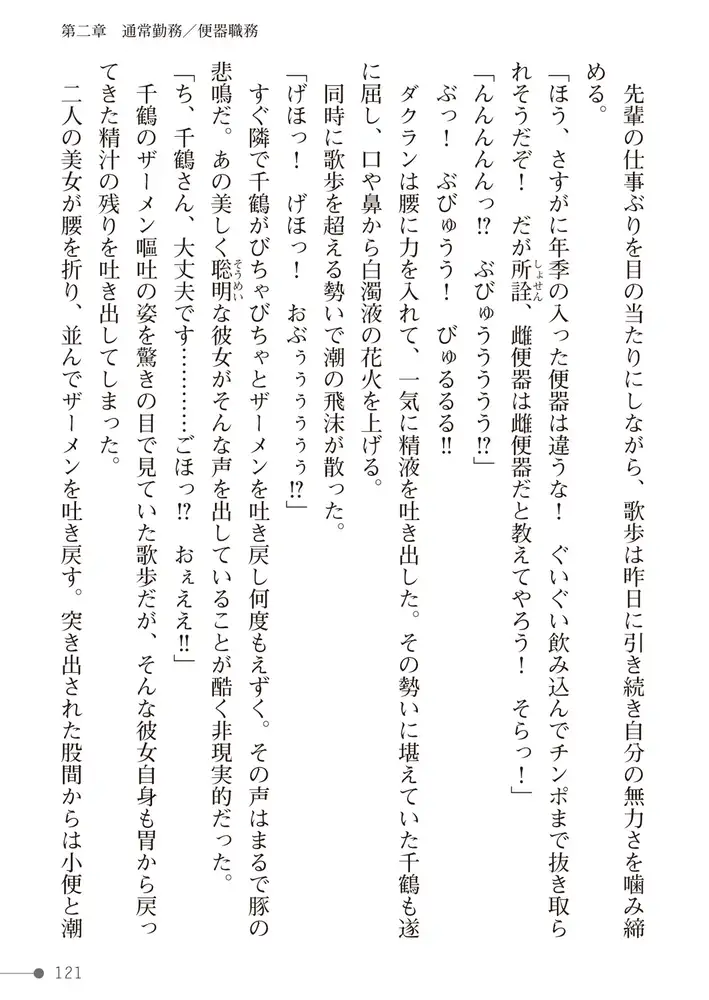 第二章　通常勤務／便器職務
　先輩の仕事ぶりを目の当たりにしながら、歌歩は昨日に引き続き自分の無力さを噛み締
める。
「ほう、さすがに年季の入った便器は違うな！　ぐいぐい飲み込んでチンポまで抜き取ら
れそうだぞ！　だが所詮、雌便器は雌便器だと教えてやろう！　そらっ！」
「んんんんんっ!?　ぶびゅうううう!?」
　ぶっ！　ぶびゅうう！　びゅるるる!!
　ダクランは腰に力を入れて、一気に精液を吐き出した。その勢いに堪えていた千鶴も遂
に屈し、口や鼻から白濁液の花火を上げる。
　同時に歌歩を超える勢いで潮の飛沫が散った。
「げほっ！　げほっ！　おぶぅぅぅぅぅ!?」
　すぐ隣で千鶴がびちゃびちゃとザーメンを吐き戻し何度もえずく。その声はまるで豚の
悲鳴だ。あの美しく聡明な彼女がそんな声を出していることが酷く非現実的だった。
「ち、千鶴さん、大丈夫です…………ごほっ!?　おぇええ!!」
　千鶴のザーメン嘔吐の姿を驚きの目で見ていた歌歩だが、そんな彼女自身も胃から戻っ
てきた精汁の残りを吐き出してしまった。
　二人の美女が腰を折り、並んでザーメンを吐き戻す。突き出された股間からは小便と潮
121